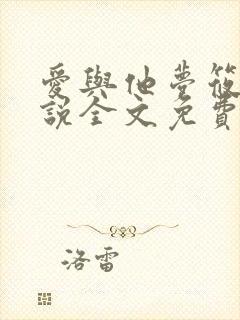 愛與他夢筱
說全文免費
洛雷